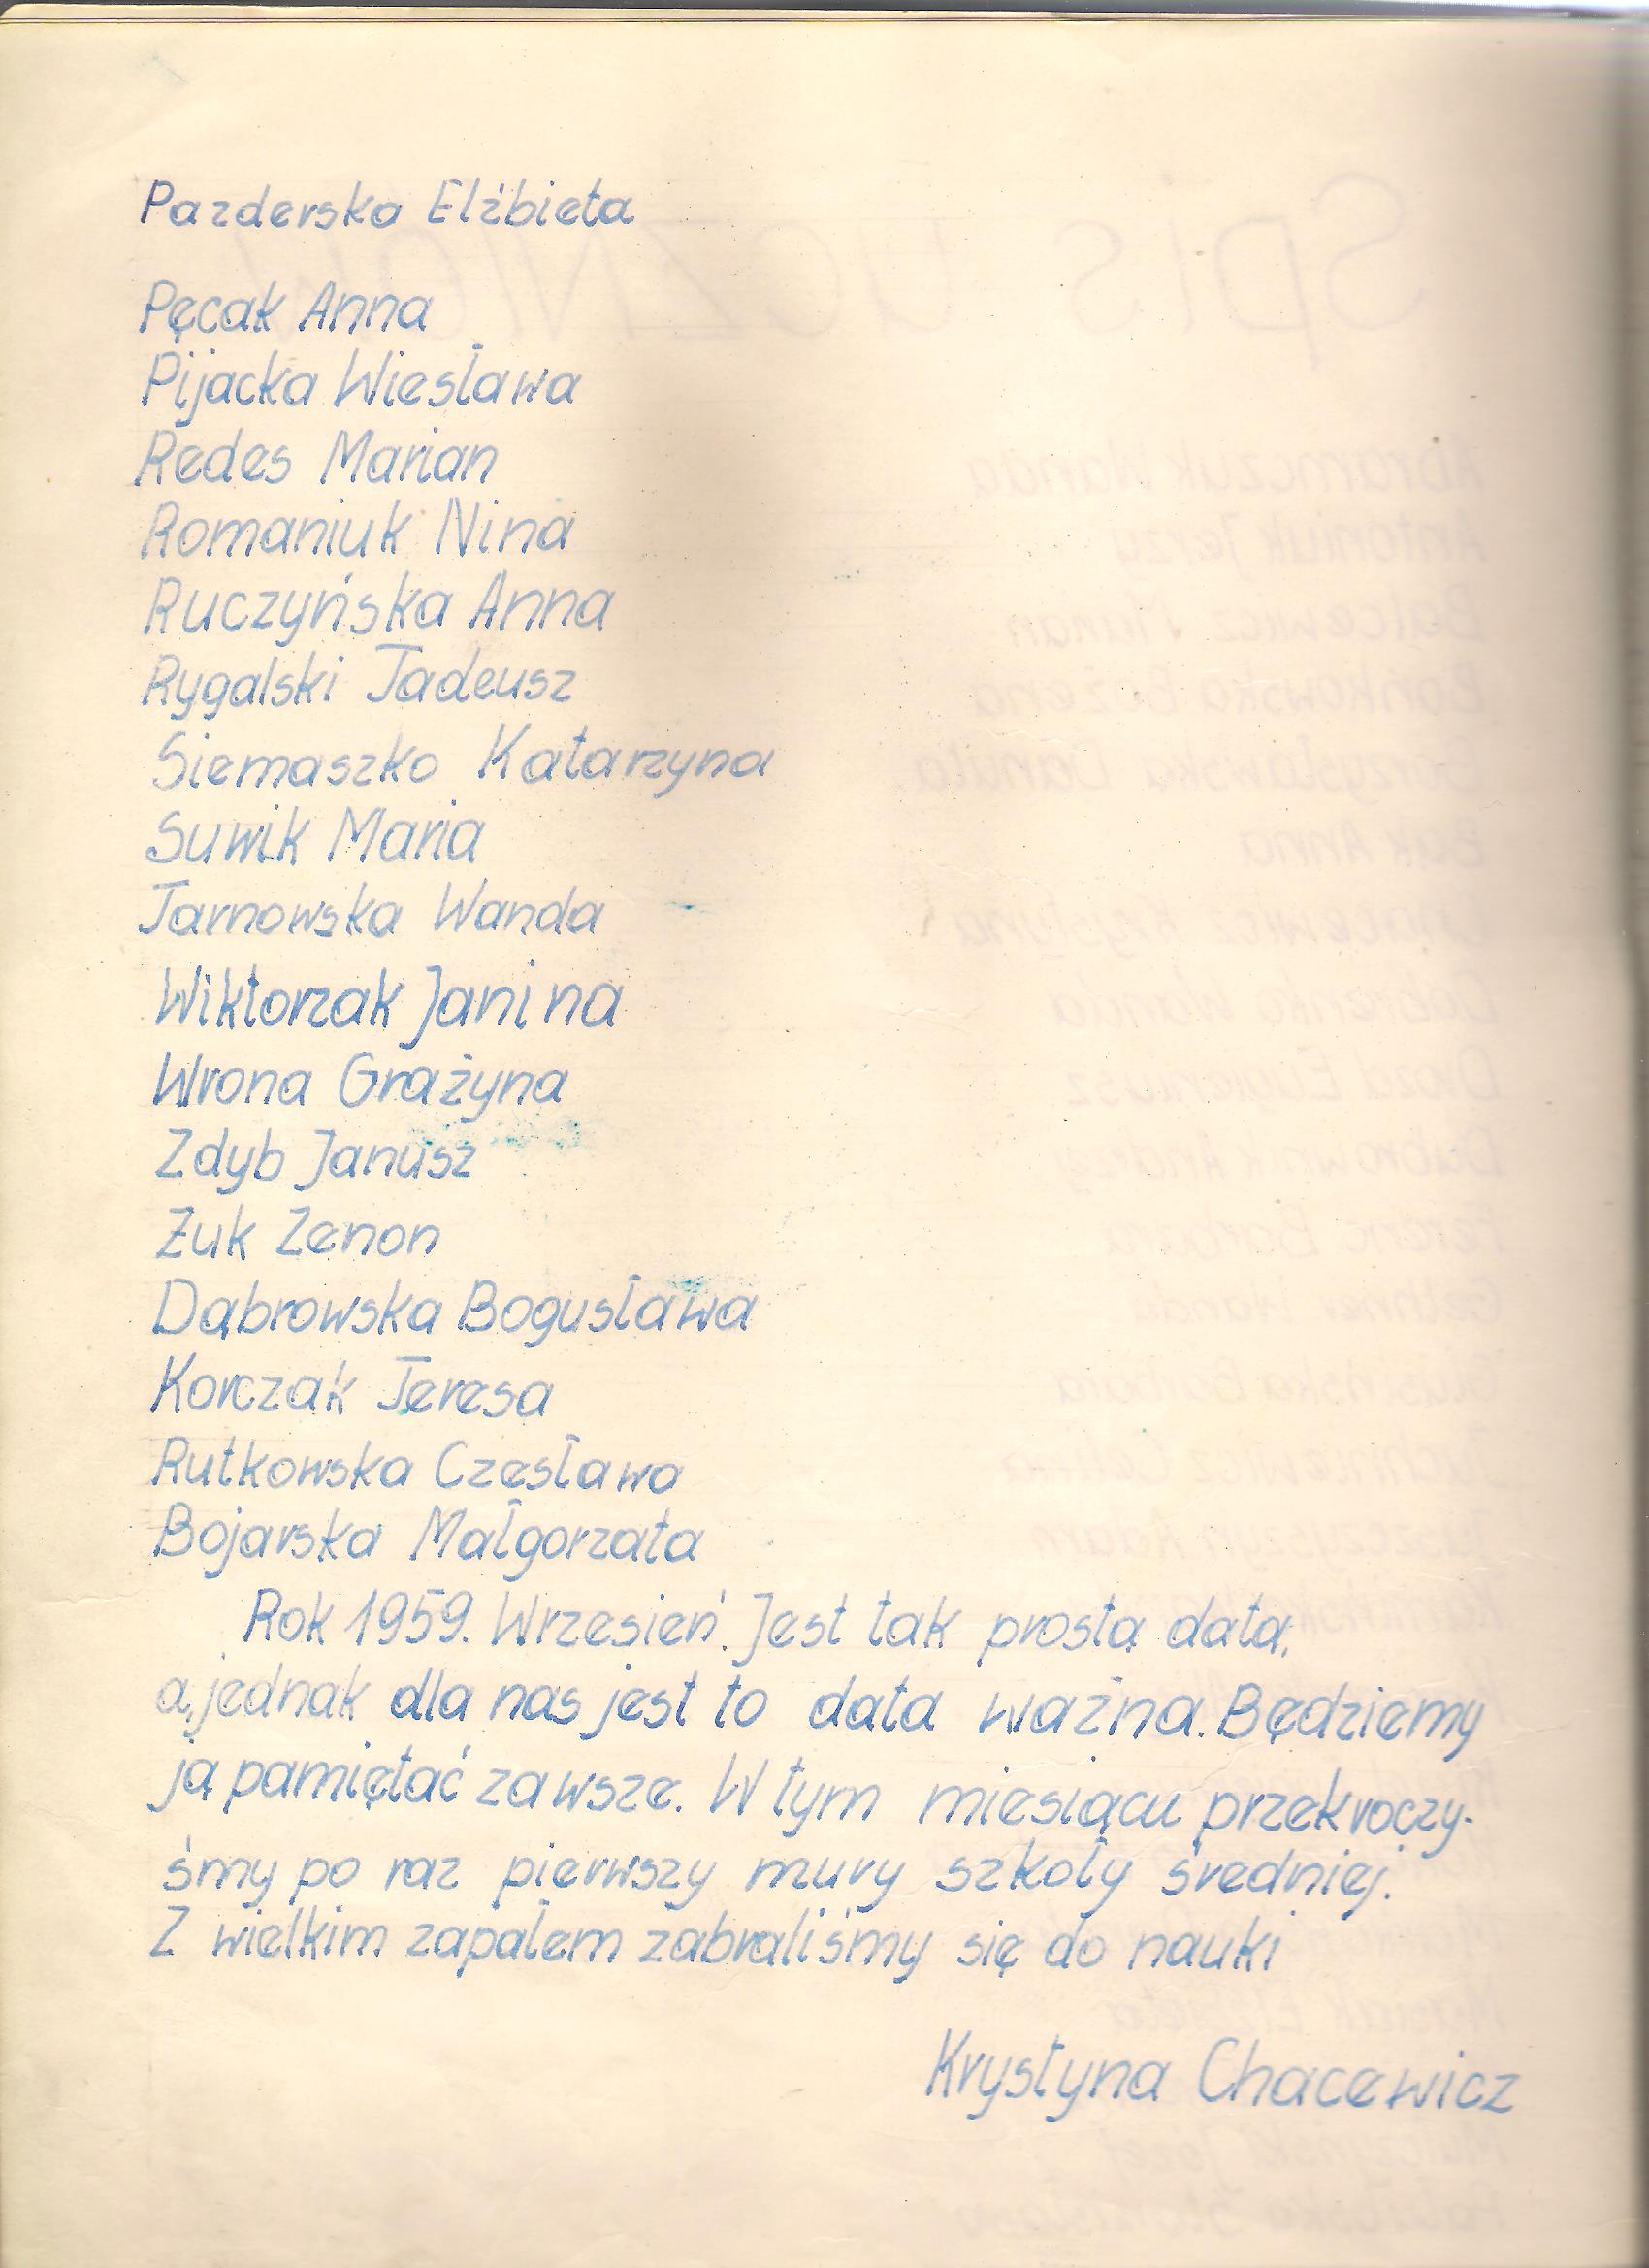 Pazderska Elżbieta
Pęcak Anna
Pijacka Wiesława
Redes Marian
Romaniuk Nina
Ruczyńska Anna
Rygalski Tadeusz
Siemaszko Katarzyna
Suwik Maria
Tarnowska Wanda
Wiktorzak Janina
Wrona Grażyna
Zdyb Janusz
Żuk Zenon
Dąbrowska Bogusława
Korczak Teresa
Rutkowska Czesława
Bojarska Małgorzata
Rok 1959. Wrzesień. Jest tak prosta data,
a jednak dla nas jest to data ważna. Będziemy
ją pamiętać zawsze. W tym miesiącu przekroczy-
śmy po raz pierwszy mury szkoły średniej.
Z wielkim zapałem zabraliśmy się do nauki
Krystyna Chacewicz